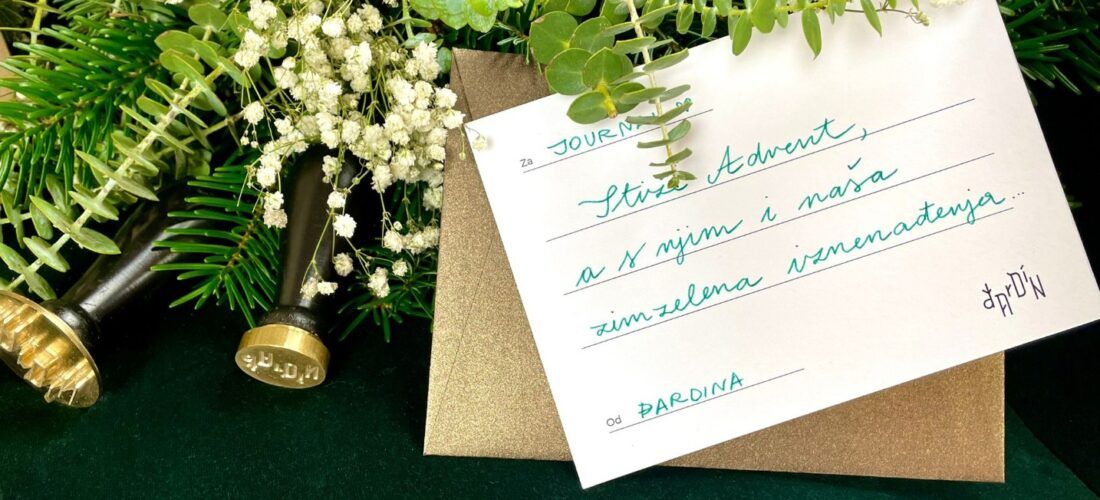 Za
Stiže Advent,
a s njim i naša
zimzelena iznenađenja...
đArDiN
Od ĐARDINA